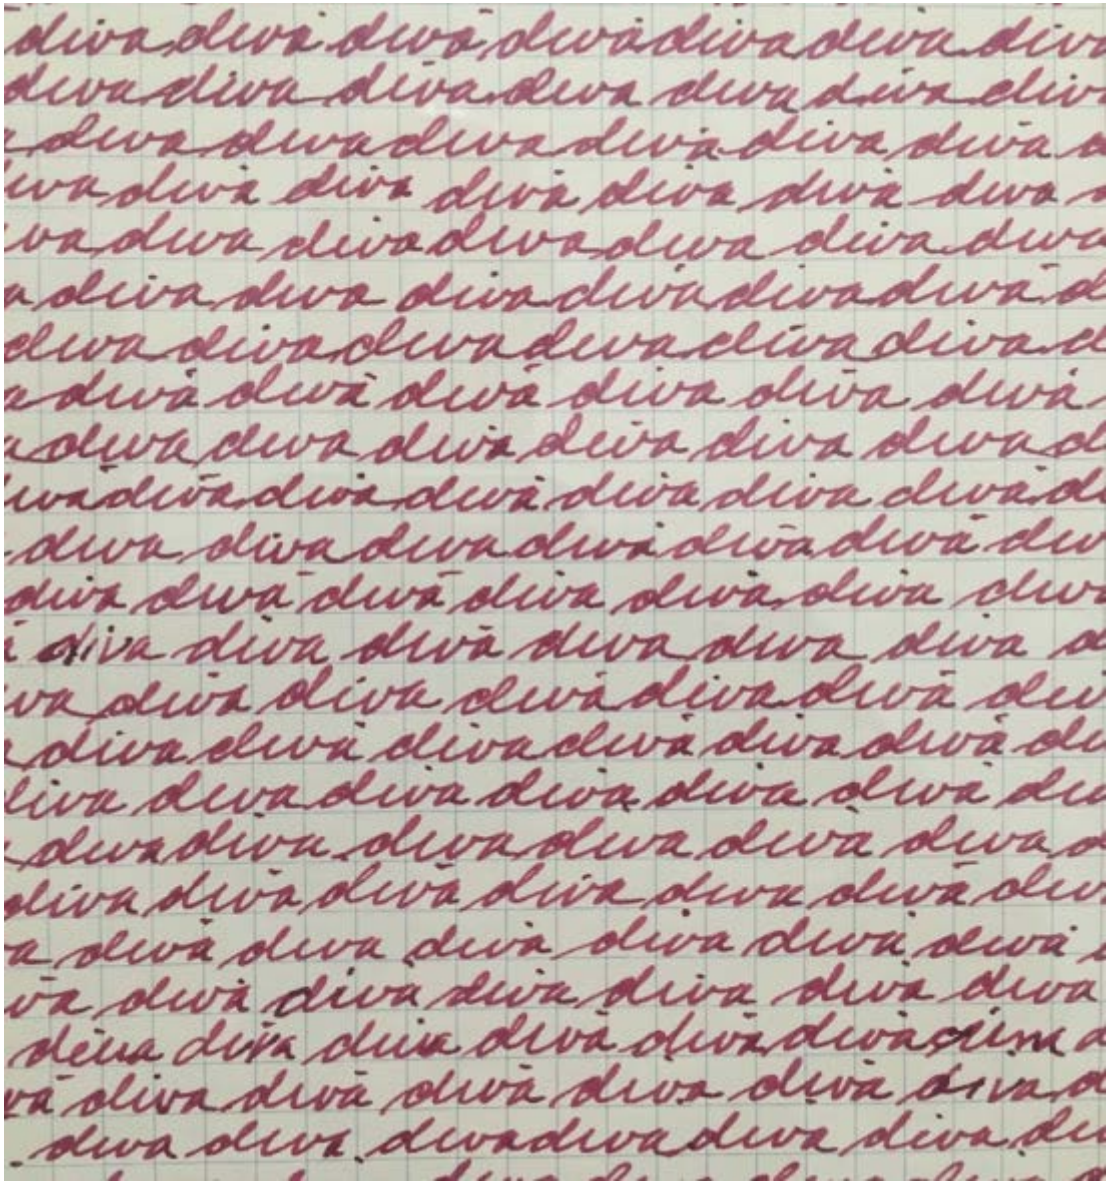 diva diva diva diva diva diva diva
diva diva diva diva diva diva diva
diva diva diva diva diva diva
diva diva diva diva diva diva diva
va diva diva diva diva diva diva
a diva diva diva diva diva diva d
diva diva diva diva diva diva d
a diva diva diva diva diva diva
a diva diva diva diva diva diva d
iva diva diva diva diva diva diva d
diva diva diva diva diva diva div
diva diva diva diva diva diva diva
diva diva diva diva diva diva d
va diva diva diva diva diva div
diva diva diva diva diva diva di
diva diva diva diva diva diva di
diva diva diva diva diva diva d
diva diva diva diva diva diva div
a diva diva diva diva diva diva
va diva diva diva diva diva diva
diva diva diva diva diva diva d
va diva diva diva diva diva diva d
diva diva diva diva diva diva di